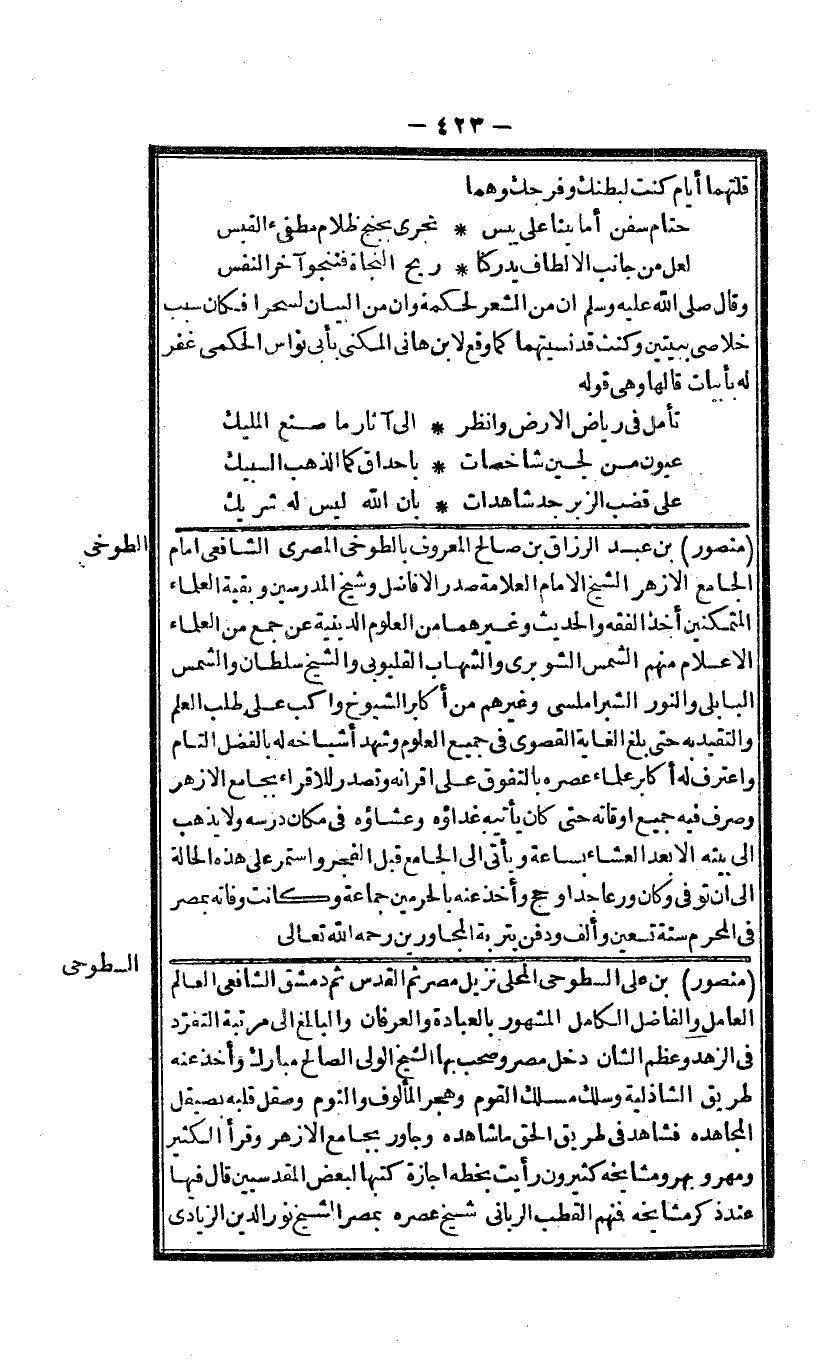 — ٤٢٣ —
قلتهما أيام كنت لبطنك وفرجك وهما
حتام سفن أمانينا على يبس * تجرى بجنح ظلام مطفئ القبس
لعل من جانب الالطاف يدركنا * ريح النجاة فننجو آخر النفس
وقال صلى الله عليه وسلم ان من الشعر لحكمة وان من البيان لسحرا فكان سبب
خلاصى ببيتين وكنت قد نسيتهما كما وقع لابن هانى المكنى بأبى نواس الحكمى غفر
له بأبيات قالها وهى قوله
تأمل فى رياض الارض وانظر * الى آثار ما صنع المليك
عيون من لجين شاخصات * باحداق كما الذهب السبيك
على قضب الزبرجد شاهدات * بان الله ليس له شريك
الطوخى
(منصور) بن عبد الرزاق بن صالح المعروف بالطوخى المصرى الشافعى امام
الجامع الازهر الشيخ الامام العلامة صدر الافاضل وشيخ المدرسين وبقية العلماء
المتمكنين أخذ الفقه والحديث وغيرهما من العلوم الدينية عن جمع من العلماء
الاعلام منهم الشمس الشوبرى والشهاب القليوبى والشيخ سلطان والشمس
البابلى والنور الشبراملسى وغيرهم من أكابر الشيوخ واكب على طلب العلم
والتقيد به حتى بلغ الغاية القصوى فى جميع العلوم وشهد أشياخه له بالفضل التام
واعترف له أكابر علماء عصره بالتفوق على اقرانه وتصدر للاقراء بجامع الازهر
وصرف فيه جميع اوقاته حتى كان يأتيه غداؤه وعشاؤه فى مكان درسه ولا يذهب
الى بيته الا بعد العشاء بساعة ويأتى الى الجامع قبل الفجر واستمر على هذه الحالة
الى ان توفى وكان ورعا جدا وحج وأخذ عنه بالحرمين جماعة وكانت وفاته بمصر
فى المحرم سنة تسعين وألف ودفن بتربة المجاورين رحمه الله تعالى
السطوحى
(منصور) بن على السطوحى المحلى نزيل مصر ثم القدس ثم دمشق الشافعى العالم
العامل والفاضل الكامل المشهور بالعبادة والعرفان والبالغ الى مرتبة التفرد
فى الزهد وعظم الشان دخل مصر وصحب بها الشيخ الولى الصالح مبارك وأخذ عنه
طريق الشاذلية وسلك مسلك القوم وهجر المألوف والنوم وصقل قلبه بصيقل
المجاهده فشاهد فى طريق الحق ما شاهده وجاور بجامع الازهر وقرأ الكثير
ومهر وبهر ومشايخه كثيرون رأيت بخطه اجازة كتبها لبعض المقدسيين قال فيها
عند ذكر مشايخه فمنهم القطب الربانى شيخ عصره بمصر الشيخ نور الدين الزيادى